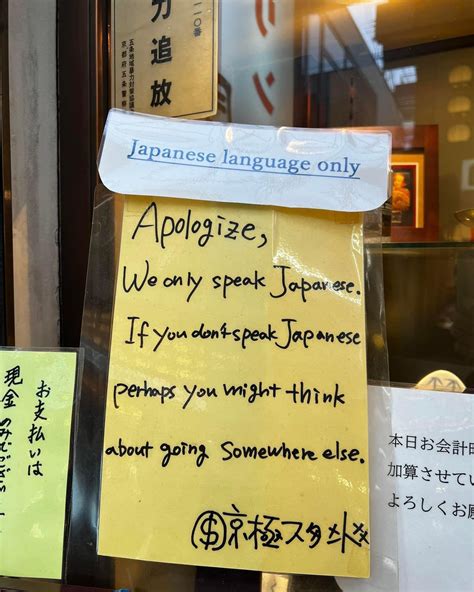 〇番
力追放
リン
Japanese language only
Apologize,
We only speak Japanese.
If you don't speak Japanese
perhaps you might think
about going Somewhere else.
京極スタンド
お支払いは
現金のみ
本日お会計
加算させてい
よろしくお